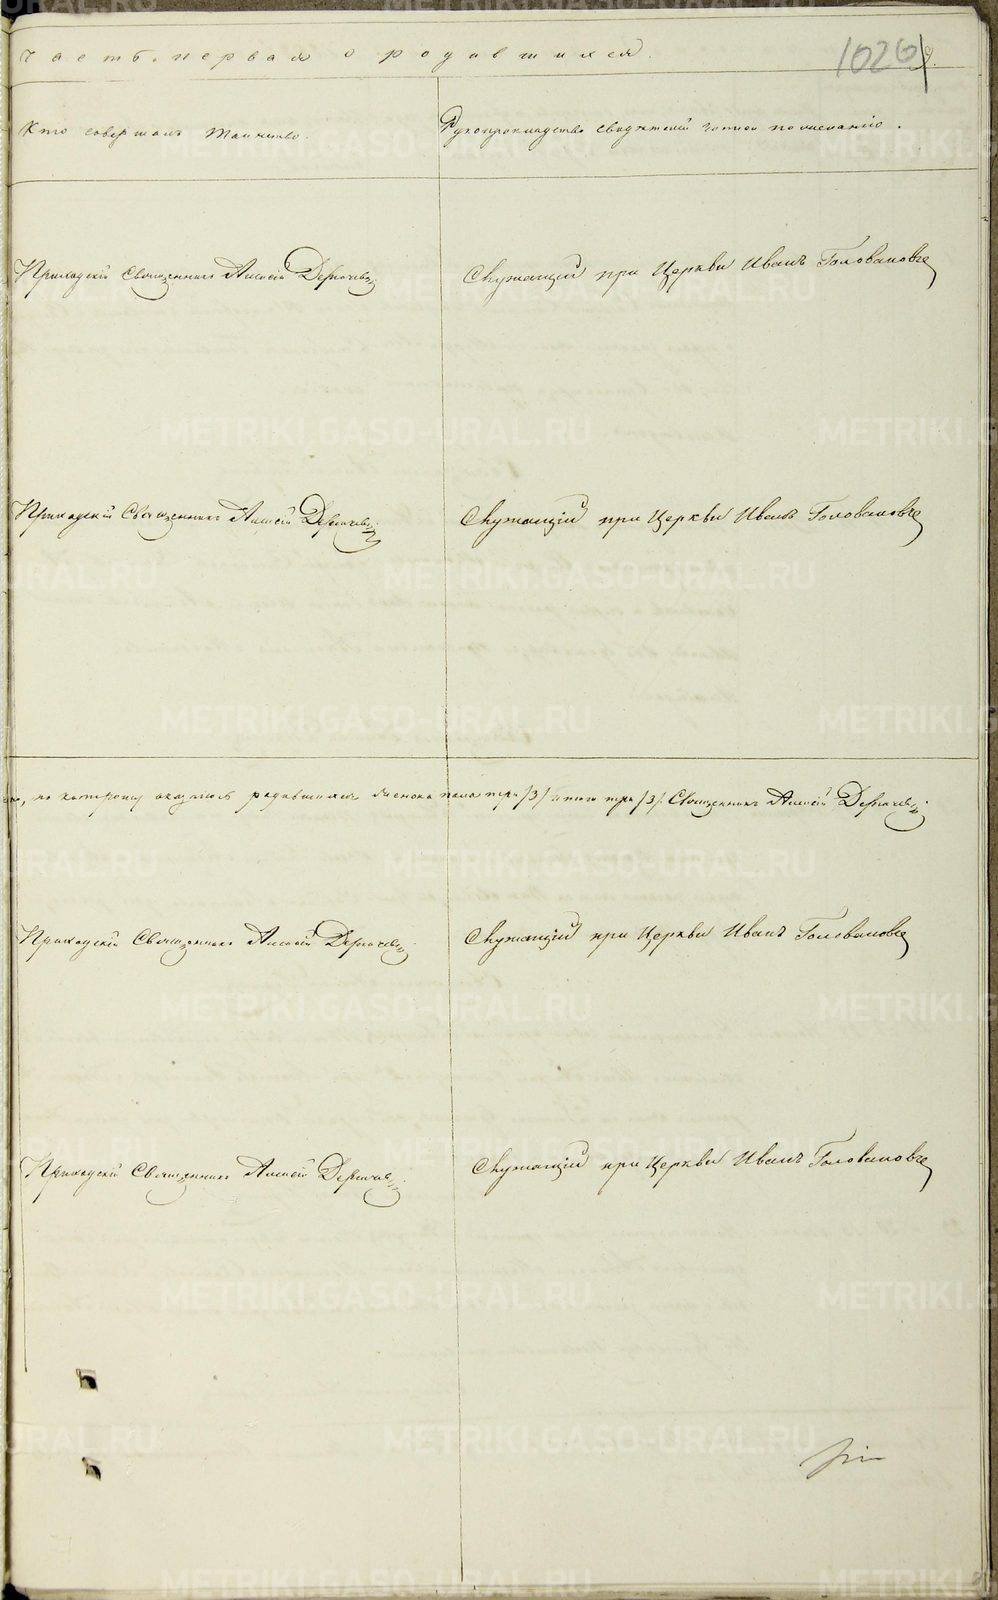 Часть первая о родившихся.
1026
Кто совершалъ таинство.
Рукоприкладство свидѣтелей записи по желанію.
Приходскій Священникъ Алексій Дерягинъ
Служащій при Церкви Иванъ Головановъ
Приходскій Священникъ Алексій
Служащій при Церкви Иванъ Головановъ
по которому оказалось родившихся женска пола три /3/ итого три /3/. Священникъ Алексій
Приходскій Священникъ Алексій
Служащій при Церкви Иванъ Головановъ
Приходскій Священникъ Алексій
Служащій при Церкви Иванъ Головановъ
METRIKI.GASO-URAL.RU